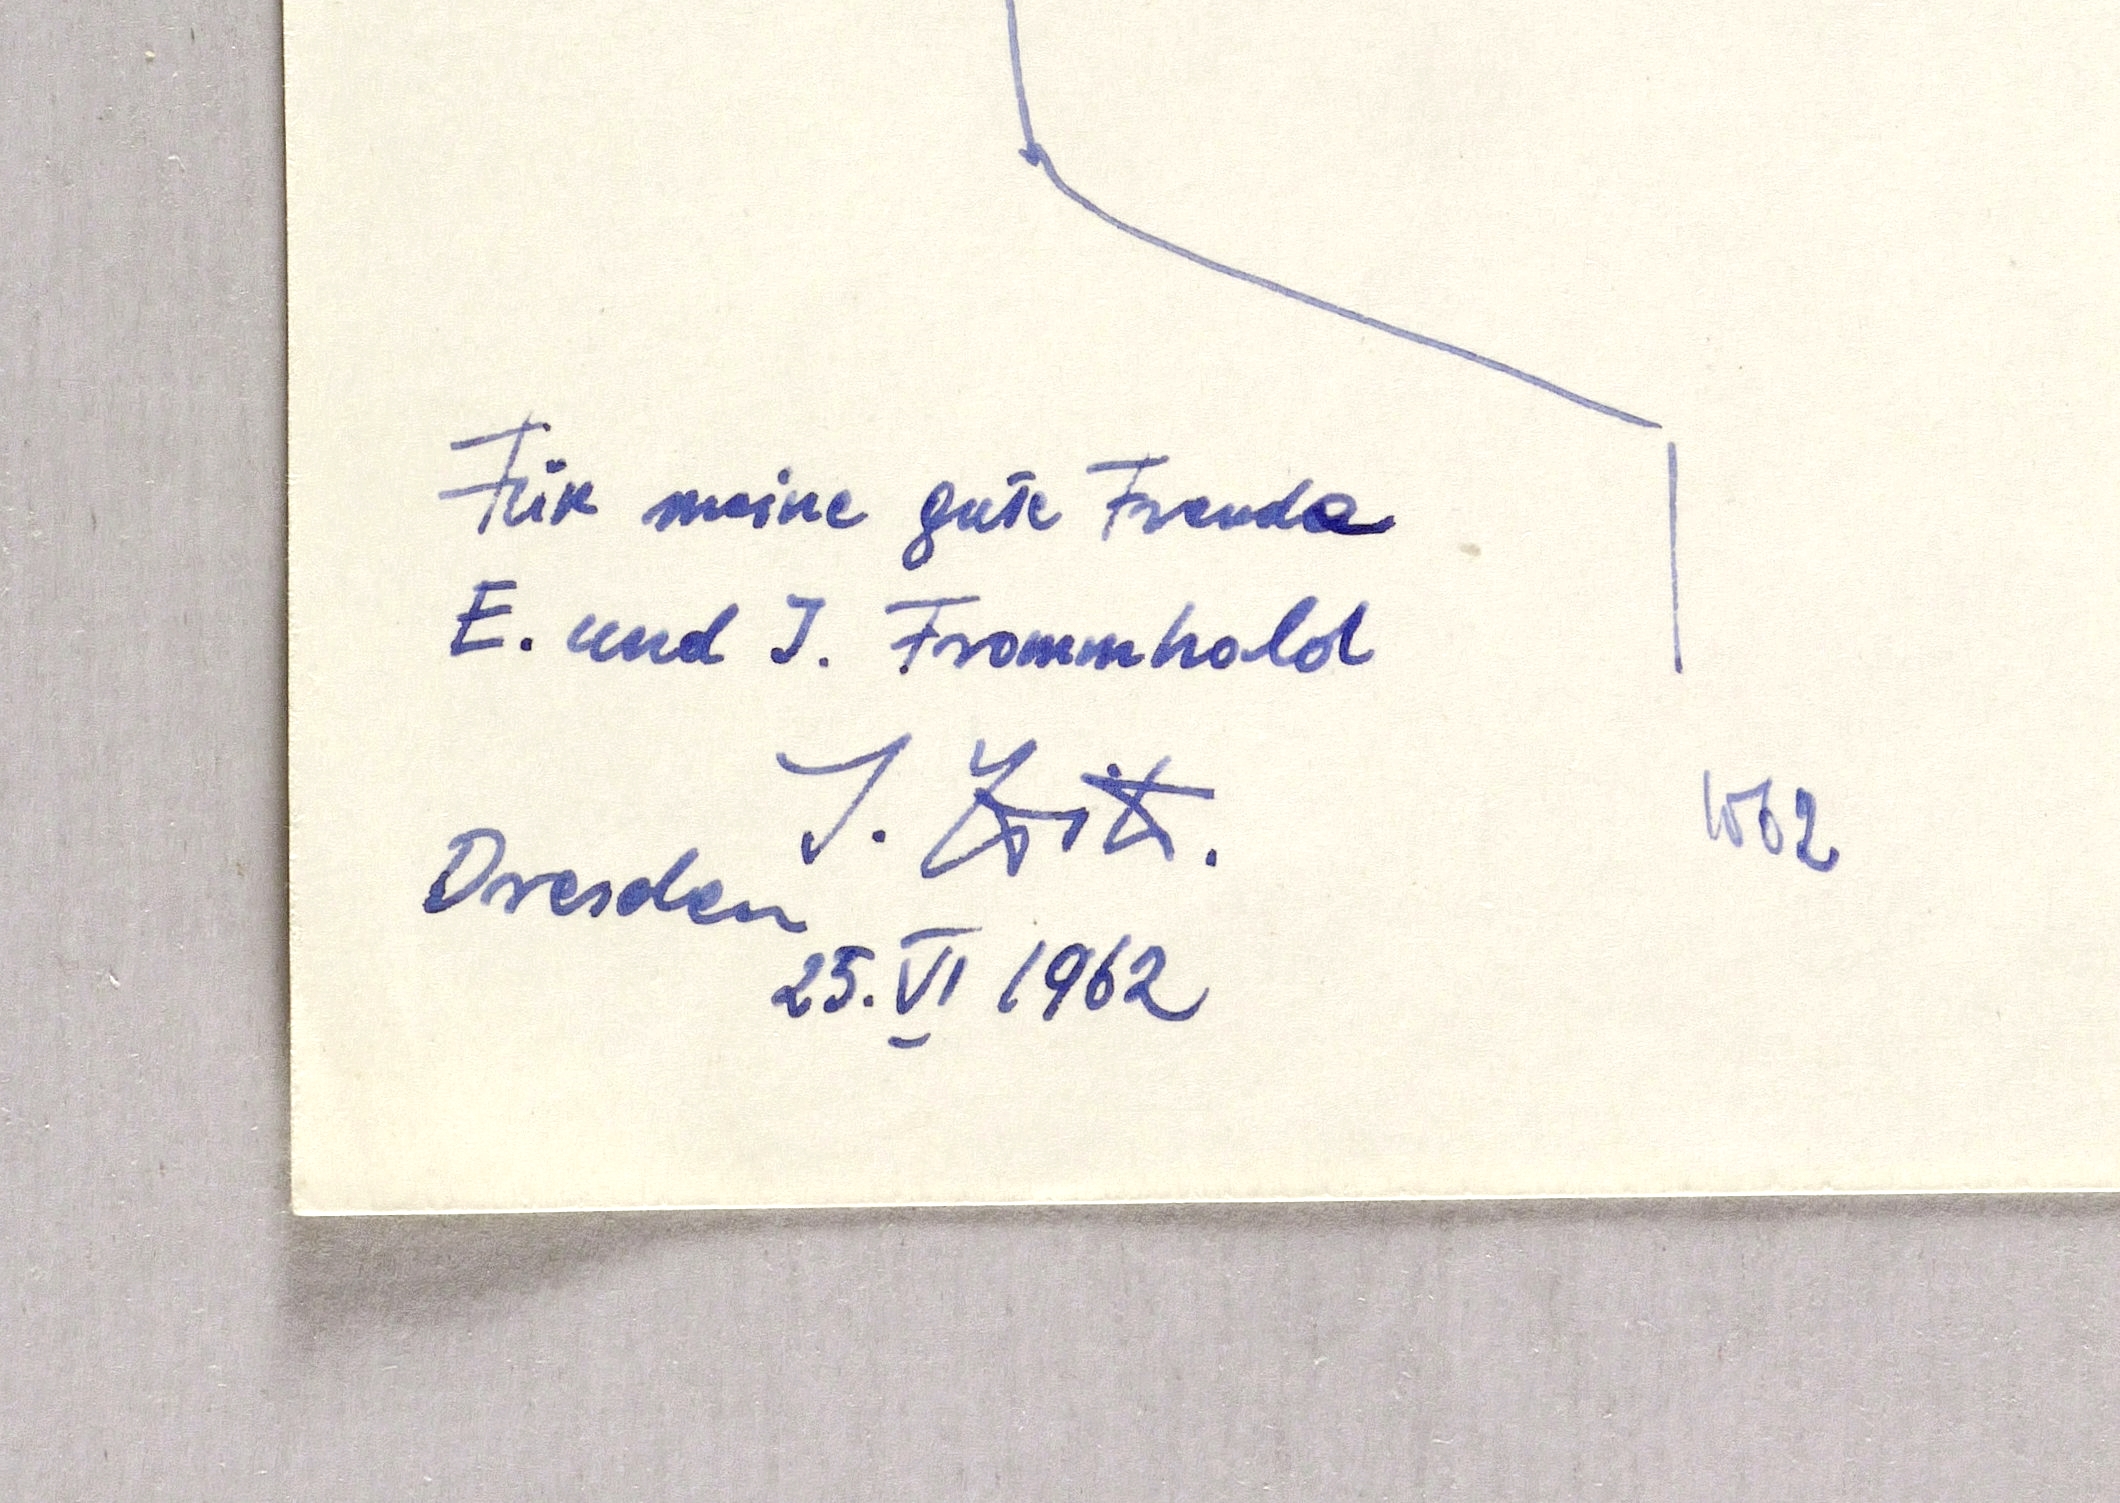 Für meine gute Freude
E. und I. Frommhold
Dresden
25. VI 1962